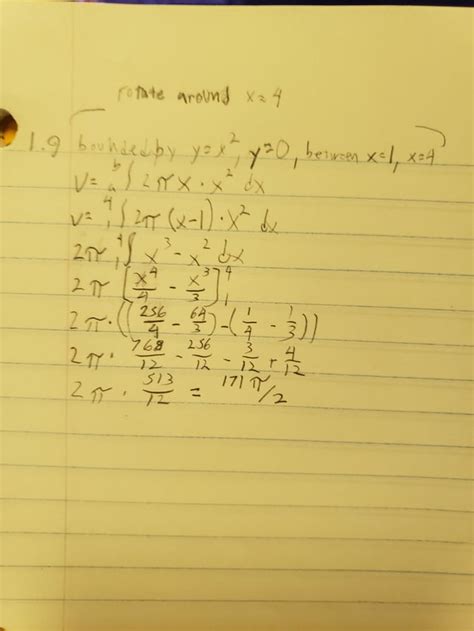 rotate around x=4
1.9 bounded by y=x², y=0, between x=1, x=4
V= ᵇₐ∫ 2πx · x² dx
V= ⁴₁∫ 2π (x-1) · x² dx
2π ⁴₁∫ x³ - x² dx
2π [x⁴/4 - x³/3]⁴₁
2π · ((256/4 - 64/3) - (1/4 - 1/3))
2π · 768/12 - 256/12 - 3/12 + 4/12
2π · 513/12 = 171π/2